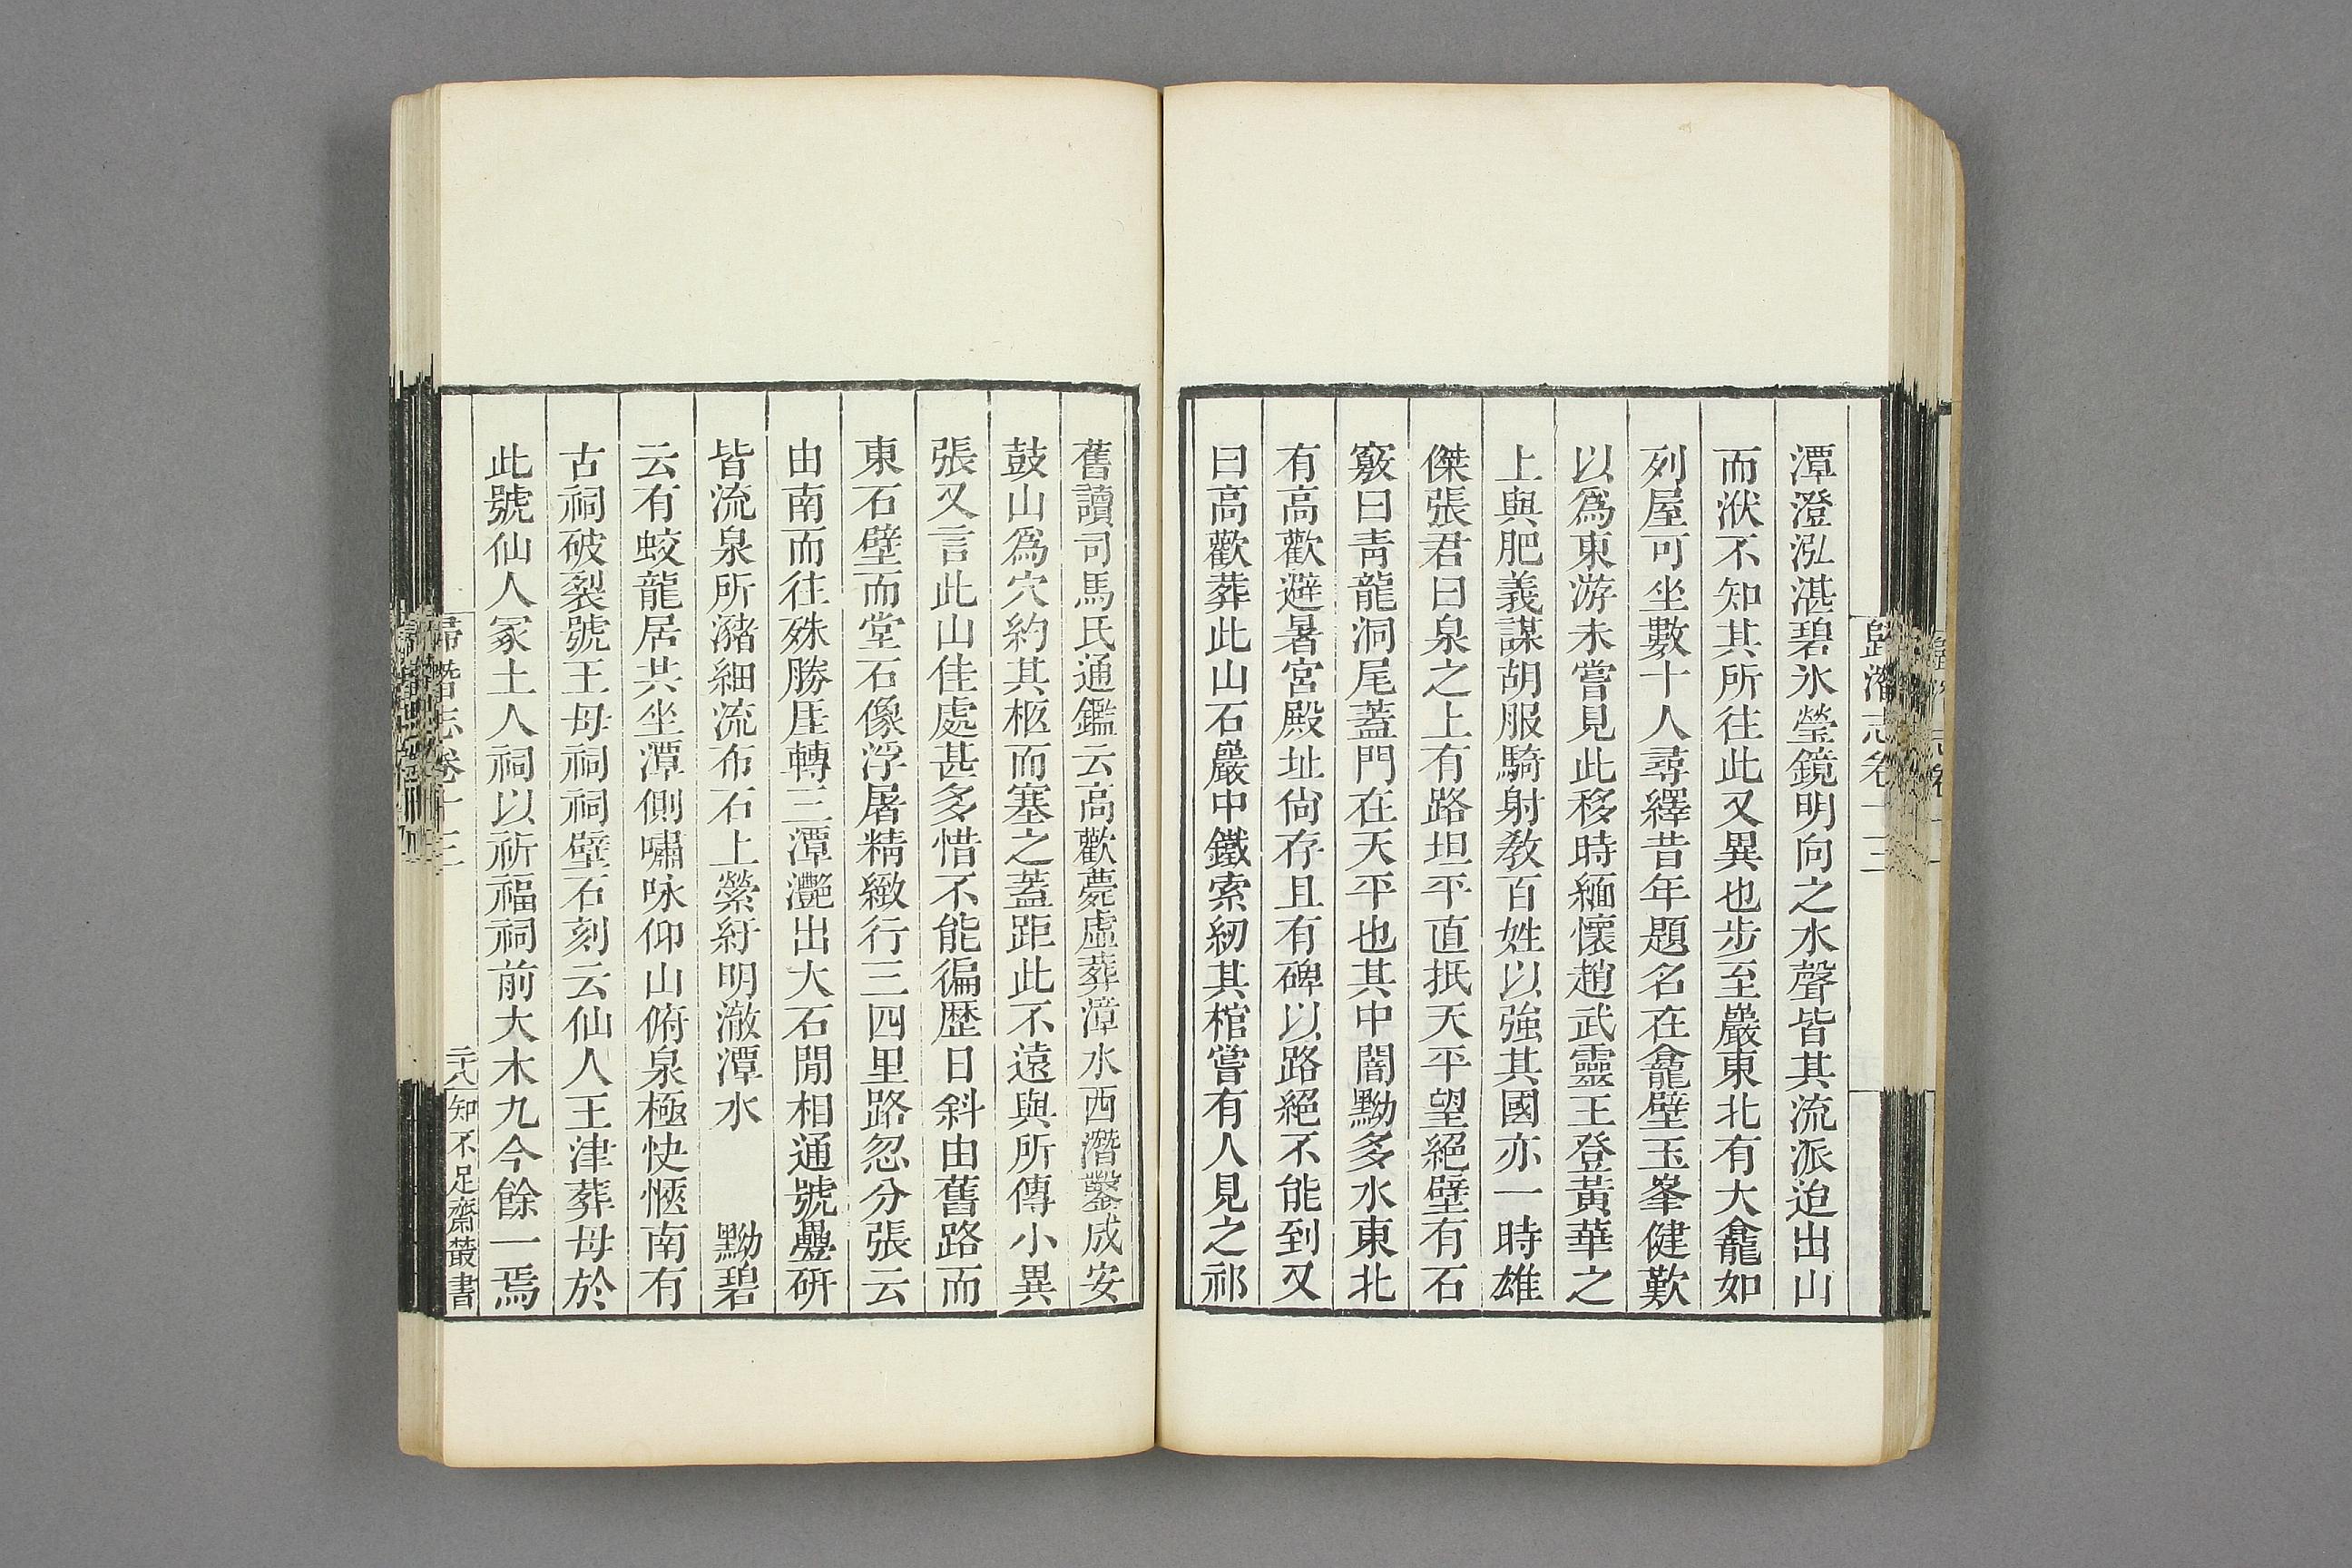 潭澄泓湛碧氷瑩鏡明向之水聲皆其流派迨出山
而洑不知其所往此又異也步至巖東北有大龕如
列屋可坐數十人尋繹昔年題名在龕壁玉峯健歎
以爲東游未嘗見此移時緬懷趙武靈王登黃華之
上與肥義謀胡服騎射敎百姓以強其國亦一時雄
傑張君曰泉之上有路坦平直抵天平望絕壁有石
竅曰靑龍洞尾蓋門在天平也其中闇黝多水東北
有高歡避暑宮殿址尙存且有碑以路絕不能到又
曰高歡葬此山石巖中鐵索紉其棺嘗有人見之祁
舊讀司馬氏通鑑云高歡薨虛葬漳水西潛鑿成安
鼓山爲穴約其柩而塞之蓋距此不遠與所傳小異
張又言此山佳處甚多惜不能徧歷日斜由舊路而
東石壁而堂石像浮屠精緻行三四里路忽分張云
由南而往殊勝厓轉三潭灔出大石閒相通號疊硏
皆流泉所瀦細流布石上縈紆明澈潭水　　黝碧
云有蛟龍居共坐潭側嘯咏仰山俯泉極快愜南有
古祠破裂號王母祠祠壁石刻云仙人王津葬母於
此號仙人冢土人祠以祈福祠前大木九今餘一焉
歸潛志卷十三
二八
知不足齋叢書